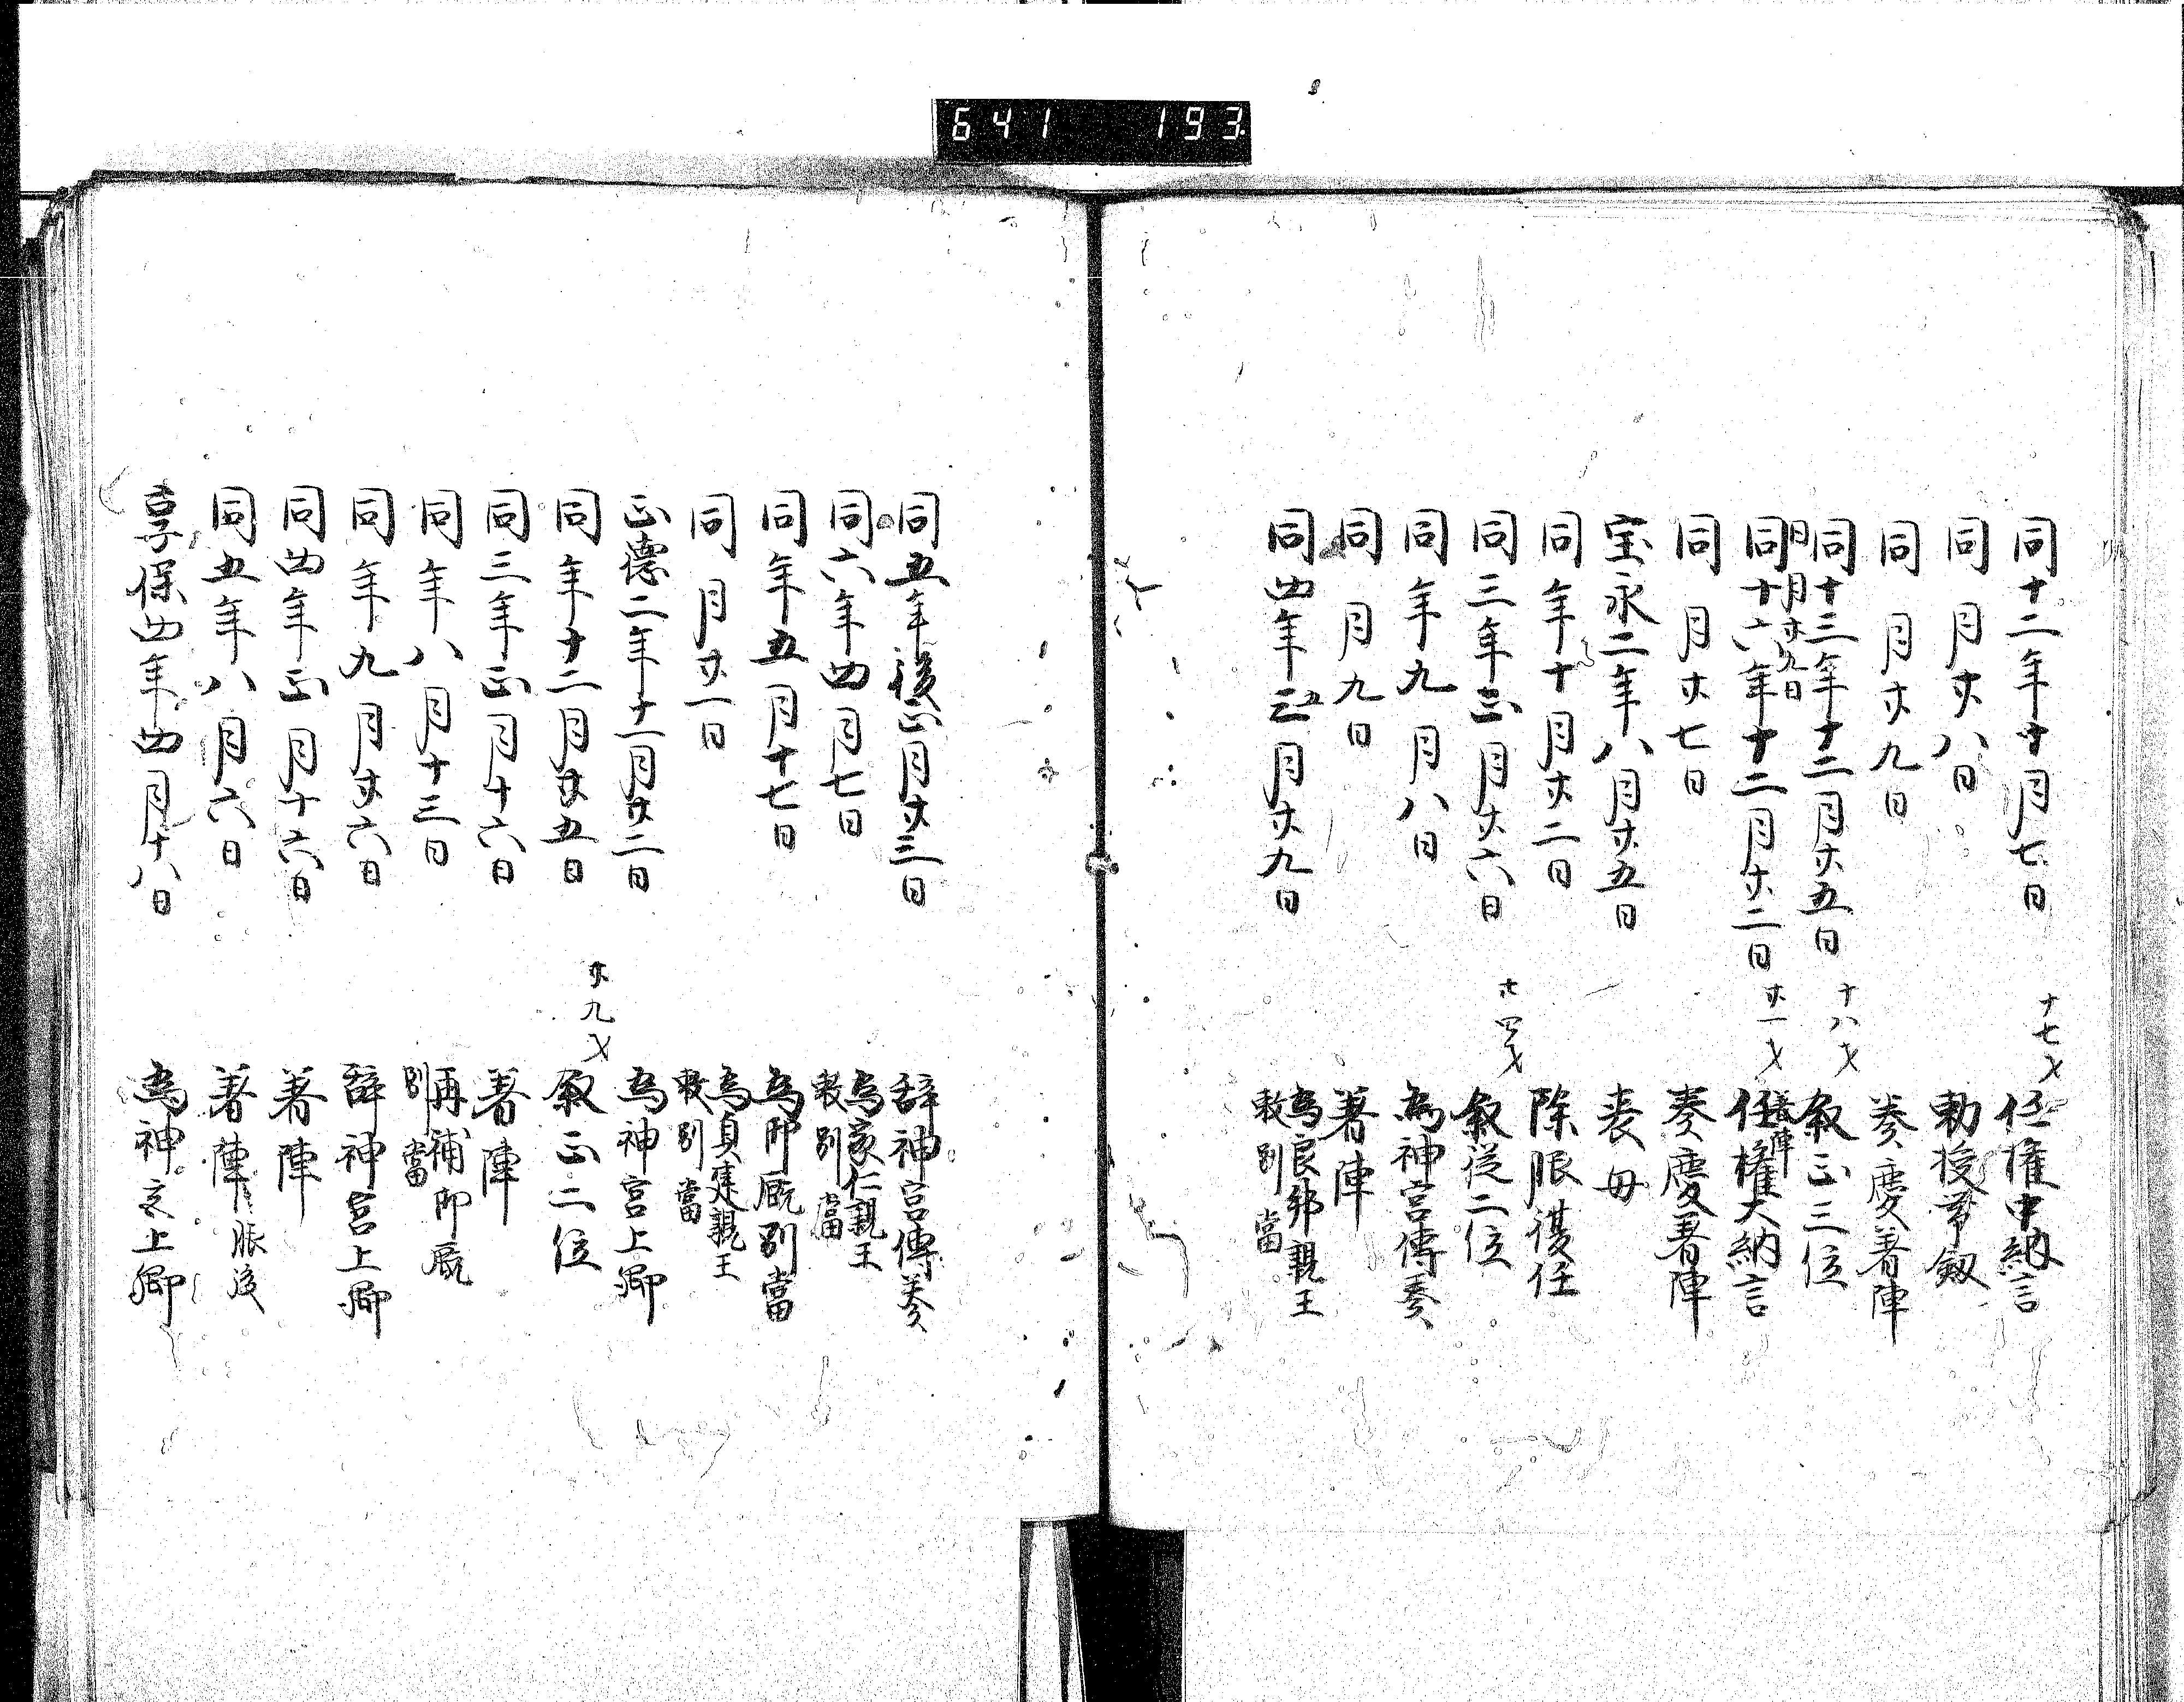 641 193
同十二年十月七日 十七才 任権中納言
同 月廿八日 勅授帯剱
同 月廿九日 奏慶着陣
同十三年十二月廿五日 十八才 叙正三位
同 月廿九日 着陣
同十六年十二月廿二日 廿一才 任権大納言
同 月廿七日 奏慶着陣
宝永二年八月廿五日 喪母
同 年十月廿二日 除服復任
同三年正月廿六日 廿四才 叙従二位
同 年九月八日 為神宮傳奏
同 月九日 着陣
同四年三月廿九日 為良邦親王
勅別當
同五年後正月廿三日 辞神宮傳奏
同六年四月七日 為家仁親王
勅別當
同 年五月十七日 為御厩別當
同 月廿一日 為貞建親王
勅別當
正徳二年十一月廿二日 為神宮上卿
同 年十二月廿五日 廿九才 叙正二位
同三年正月十六日 着陣
同 年八月十三日 再補御厩
別當
同 年九月廿六日 辞神宮上卿
同四年正月十六日 着陣
同五年八月六日 着陣 服後
享保四年四月十八日 為神宮上卿